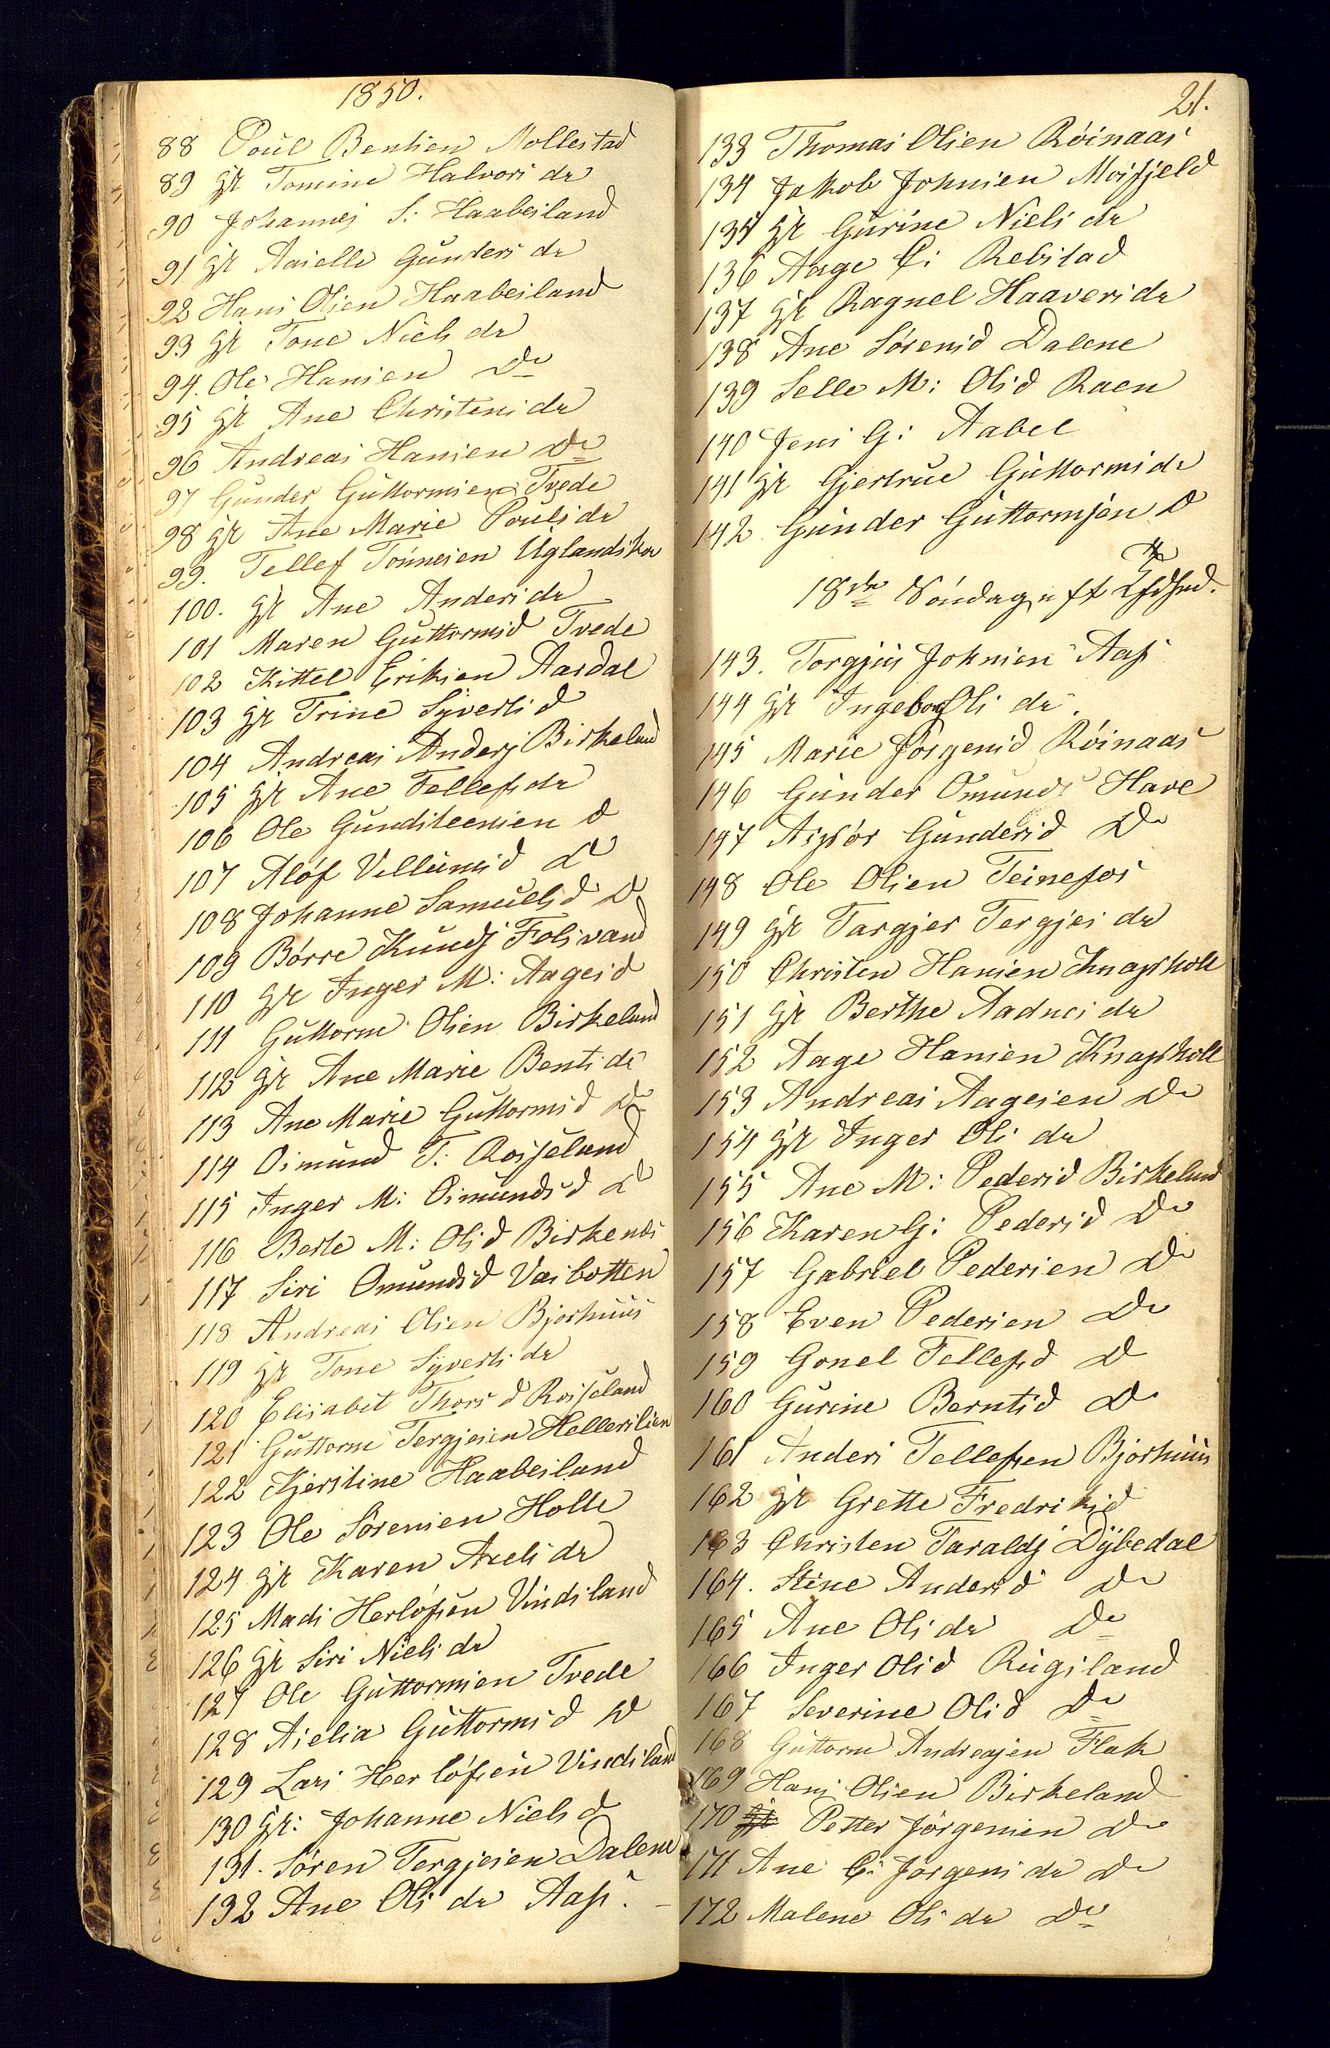 1850.
88 Poul Bentsen Mollestad
89 gr Tomine Halvors dr
90 Johannes S: Haabesland
91 gr Aasille Gunders dr
92 Hans Olsen Haabesland
93 gr Tone Niels dr
94. Ole Hansen Do
95 gr Ane Christens dr
96 Andreas Hansen Do
97 Gunder Guttormsen Tvede
98 gr Ane Marie Pouls dr
99. Tellef Tønnesen Uglandskn
100. gr Ane Anders dr
101 Maren Guttormsd Tvede
102 Kittel Eriksen Aardal
103 gr Trine Syverts d
104 Andreas Andersj Birkeland
105 gr Ane Tellefs dr
106 Ole Gundsteensen d
107 Aløf Villumsd do
108 Johanne Samuelsd Do
109 Børre Knudsj Folsvand
110 gr Inger M: Aagesd
111 Guttorm Olsen Birkeland
112 gr Ane Marie Bents dr
113 Ane Marie Guttormsd Do
114 Osmund T: Rosseland
115 Inger M: Osmundsd do
116 Berte M: Olsd Birkenes
117 Siri Omundsd Vasbotten
118 Andreas Olsen Bjorhuus
119 gr Tone Syverts dr
120 Elisabet Thors d Rosseland
121 Guttorm Tergjesen Hellerslien
122 Kjerstine Haabesland
123 Ole Sørensen Holte
124 gr Karen Axels dr
125 Mads Herløfsen Vindsland
126 gr Siri Niels dr
127 Ole Guttormsen Tvede
128 Aselia Guttormsd do
129 Lars Herløfsen Vindsland
130 gr: Johanne Niels d
131. Søren Tergjesen Dalene
132 Ane Ols dr Aas.
21.
133 Thomas Olsen Røinaas
134 Jakob Johnsen Mosfjeld
135 gr Gurine Niels dr
136 Aage C: Rebstad
137 gr Ragnel Haavers dr
138 Ane Sørensd Dalene
139 Selle M: Olsd Raen
140 Jens G: Aabel
141 gr Gjertrue Guttorms dr
142 Gunder Guttormsen d
18de Søndag eft
143. Torgjus Johnsen Aas
144 gr Ingeborg Ols dr.
145 Marie Jørgensd Røinaas
146 Gunder Omunds Have
147 Asbør Gundersd Do
148 Ole Olsen Teinefos
149 gr Targjer Tergjes dr
150 Christen Hansen Knapsholl
151 gr Berthe Aadnes dr
152 Aage Hansen Knapsholl
153 Andreas Aagesen Do
154 gr Inger Ols dr
155 Ane M: Pedersd Birkeland
156 Karen G: Pedersd Do
157 Gabriel Pedersen Do
158 Even Pedersen Do
159 Gonel Tellefsd Do
160 Gurine Berntsd Do
161 Anders Tellefsen Bjorhuus
162 gr Grette Fredriksd
163 Christen Taraldsj Dybedal
164. Stine Andersd Do
165 Ane Ols dr Do
166 Inger Olsd Rugsland
167 Severine Olsd Do
168 Guttorm Andreasen Flak
169 Hans Olsen Birkeland
170 Petter Jørgensen Do
171 Ane C: Jørgens dr Do
172 Malene Ols dr Do